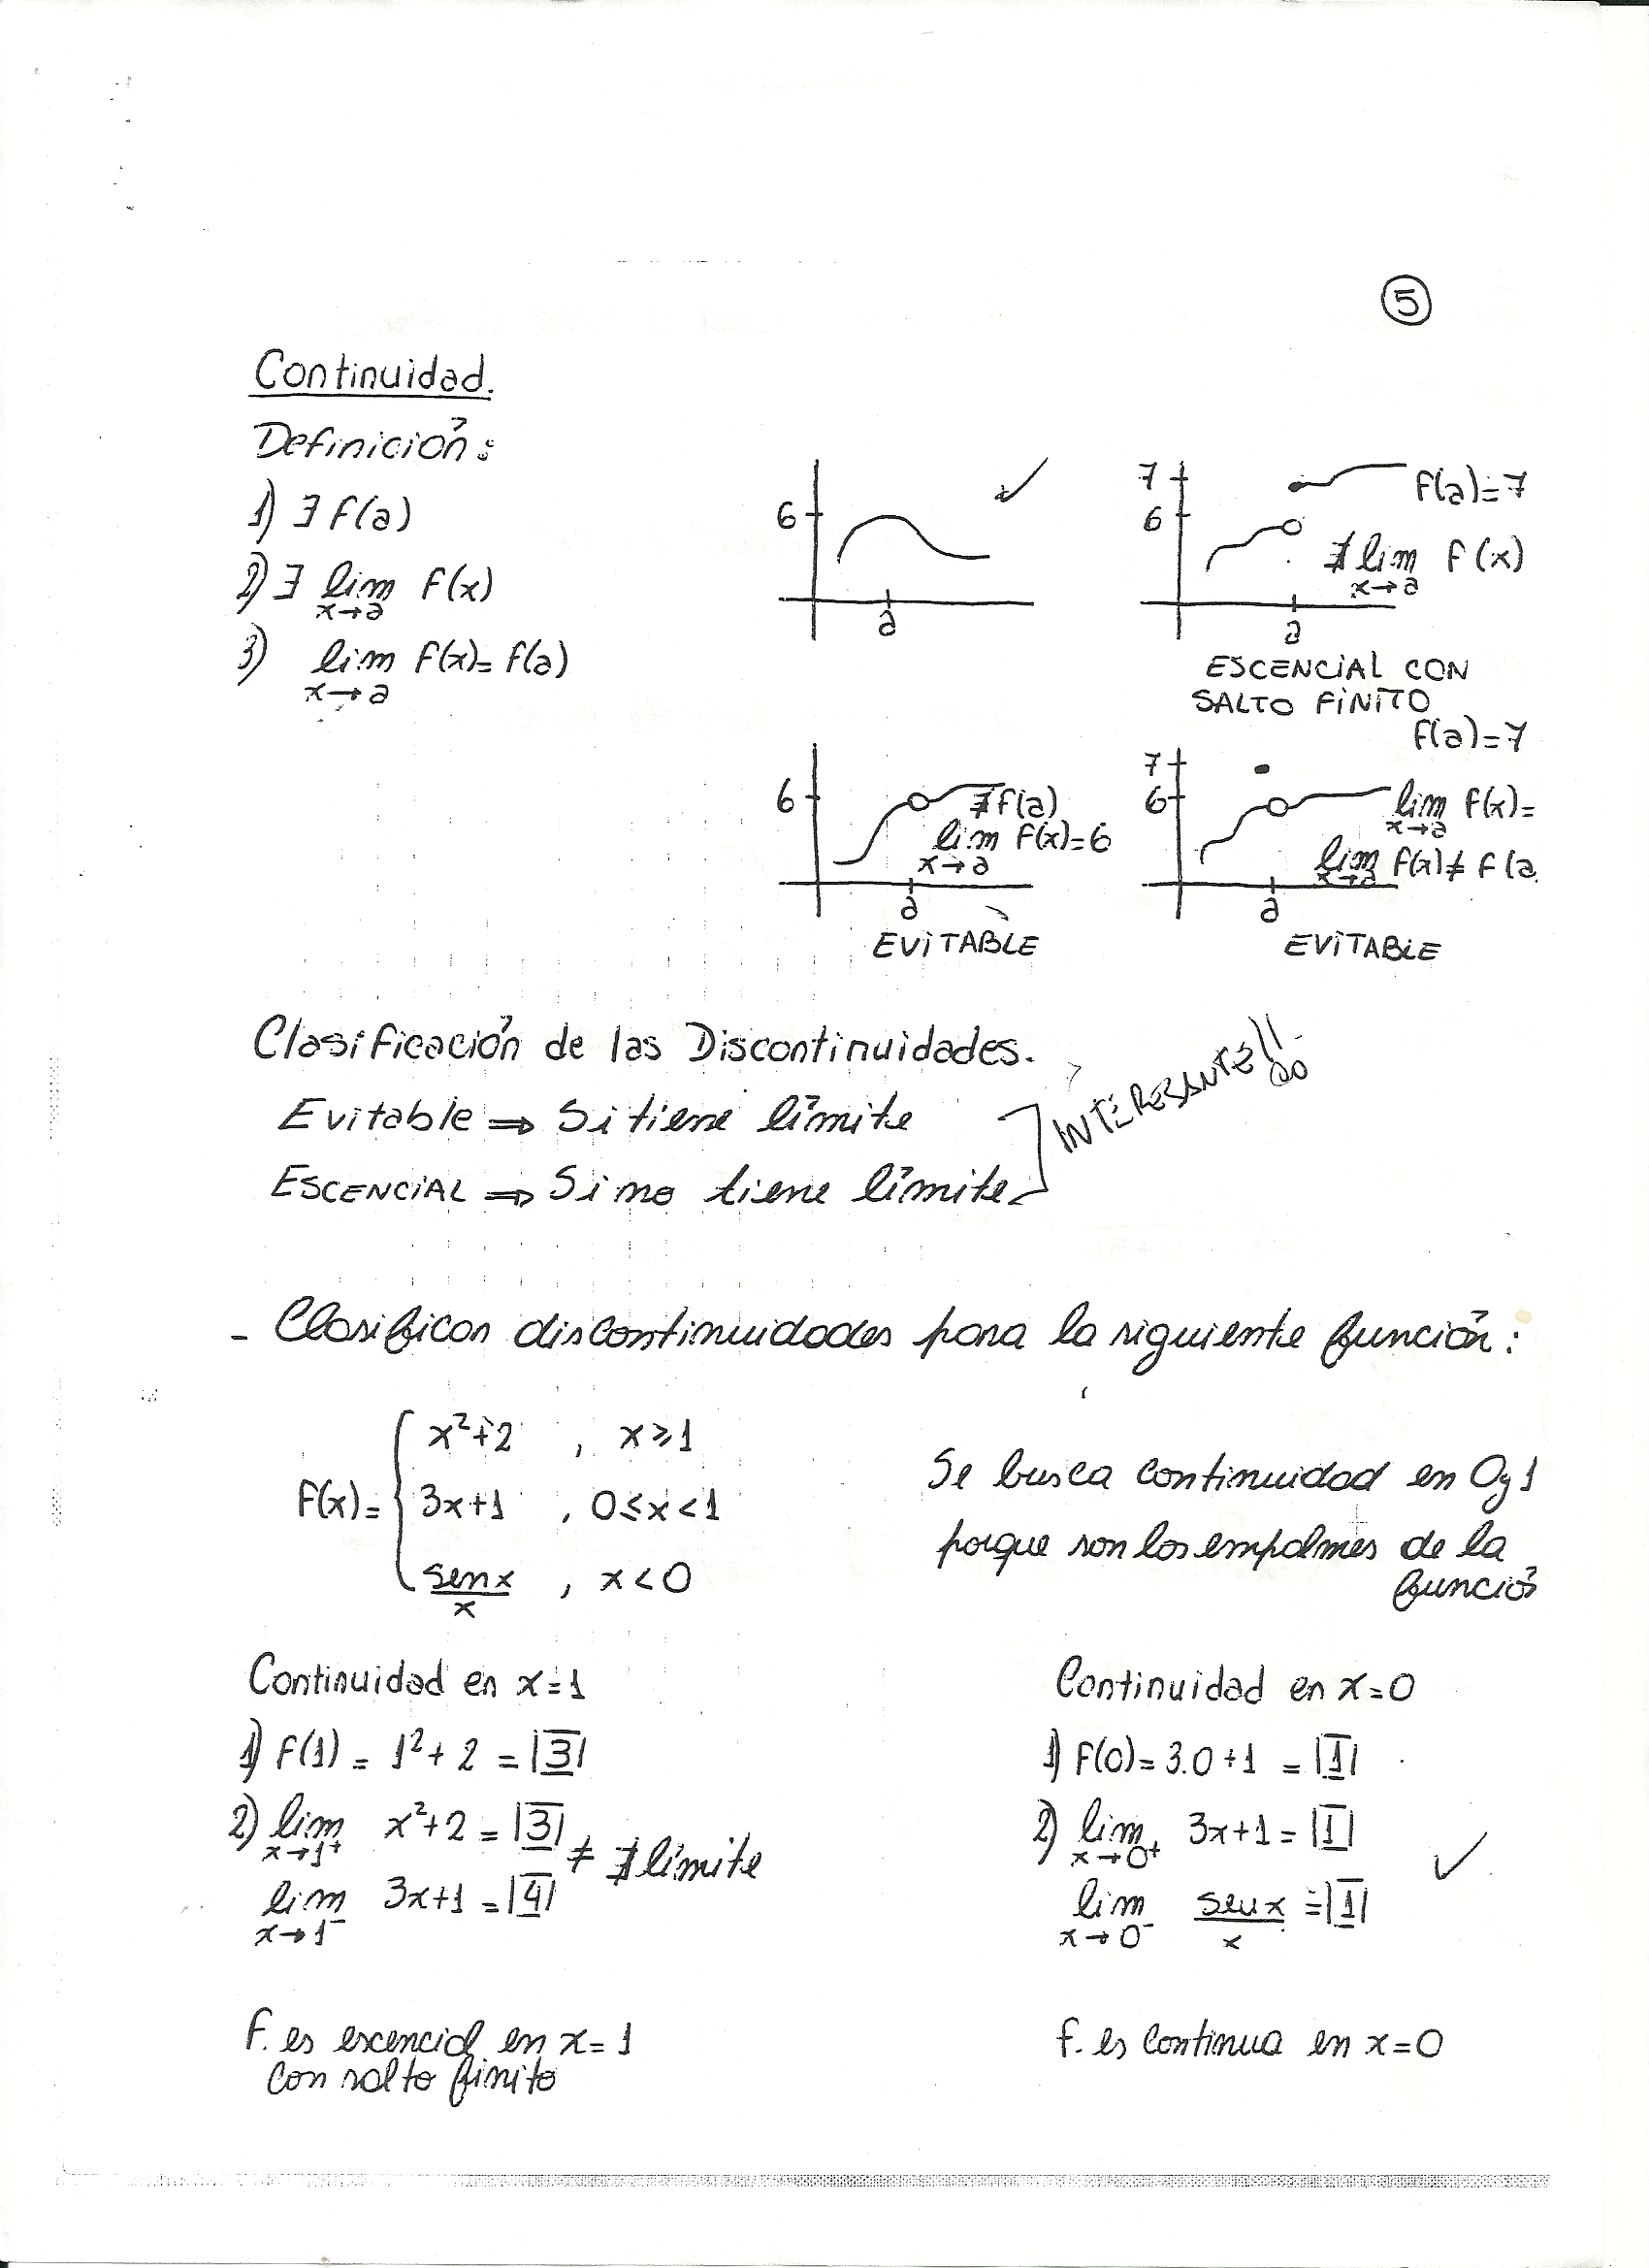 5
Continuidad.
Definición:
1) ∃ f(a)
2) ∃ lim f(x)
x→a
3) lim f(x)= f(a)
x→a
6
a
7
6
f(a)=7
∄ lim f(x)
x→a
a
ESCENCIAL CON
SALTO FINITO
6
∄f(a)
lim f(x)=6
x→a
a
EVITABLE
f(a)=7
7
6
lim f(x)=
x→a
lim f(x)≠ f(a
x→a
a
EVITABLE
Clasificación de las Discontinuidades.
Evitable ⇒ Si tiene límite
ESCENCIAL ⇒ Si no tiene límite
INTERESANTE!!
- Clasificar discontinuidades para la siguiente función:
x²+2 , x≥1
f(x)= { 3x+1 , 0≤x<1
sen x , x<0
x
Se busca continuidad en 0 y 1
porque son los empalmes de la
función
Continuidad en x=1
1) f(1) = 1²+ 2 = |3|
2) lim x²+2 = |3|
x→1⁺
≠ ∄ límite
lim 3x+1 = |4|
x→1⁻
F. es escencial en x=1
con salto finito
Continuidad en x=0
1) f(0)= 3.0+1 = |1|
2) lim 3x+1= |1|
x→0⁺
lim sen x =|1|
x→0⁻ x
f. es continua en x=0